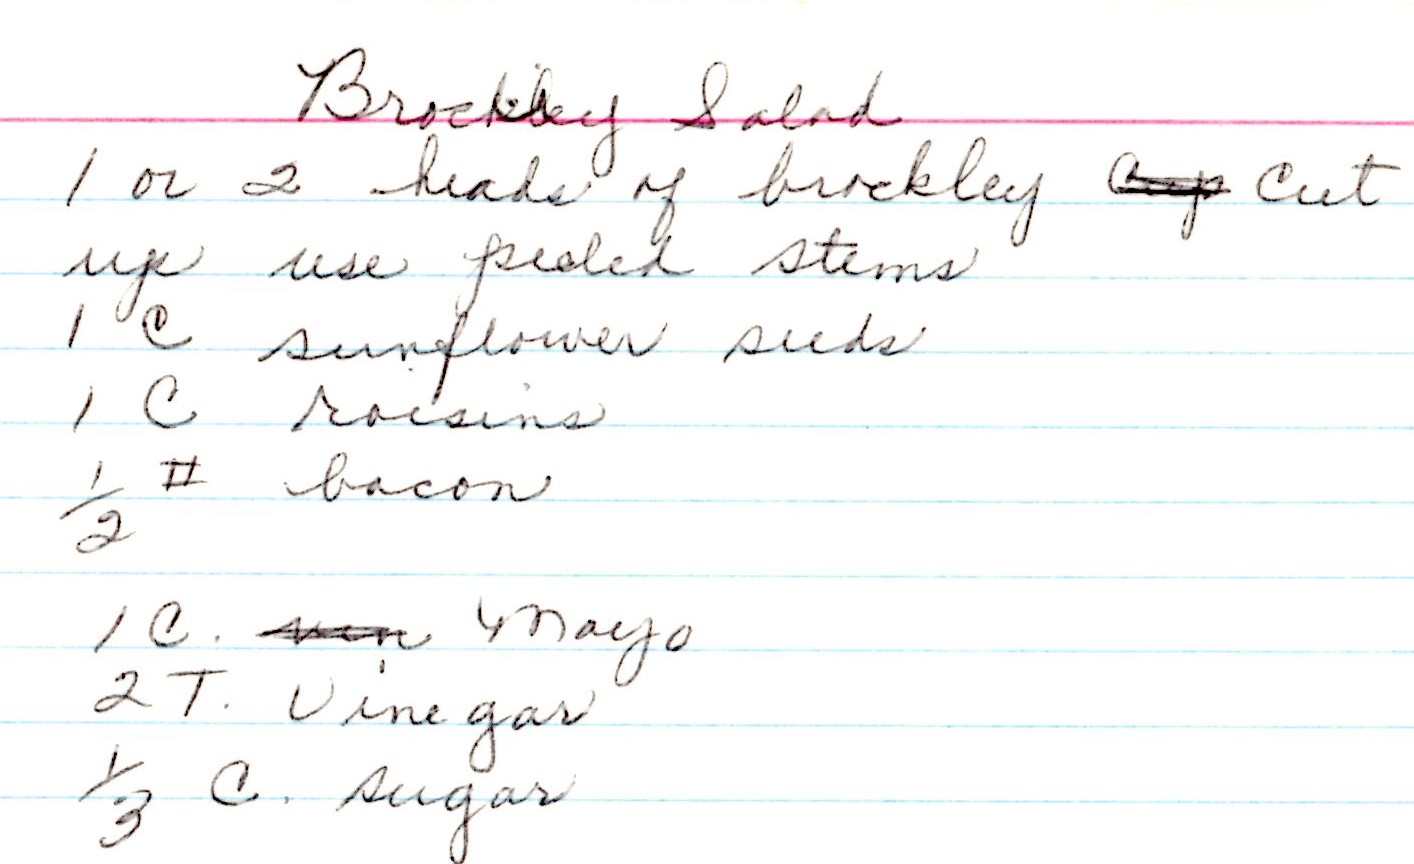 Brockley Salad
1 or 2 heads of brockley cut
up use peeled stems
1 C sunflower seeds
1 C raisins
1/2 # bacon
1 C. Mayo
2 T. Vinegar
1/3 C. sugar